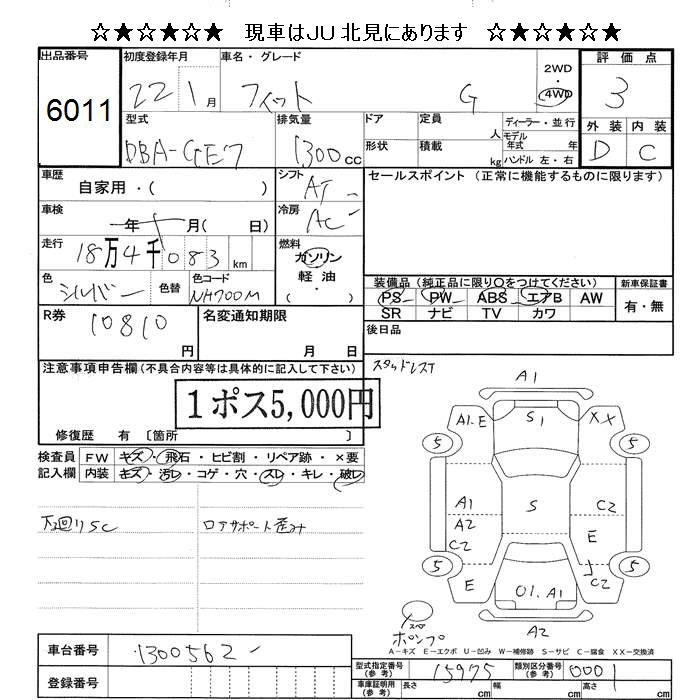 ☆★☆★☆★ 現車はJU北見にあります ☆★☆★☆★
出品番号 初度登録年月 車名・グレード 2WD・4WD 評価点
6011 22 1月 フィット G 3
型式 排気量 ドア 定員 人 ディーラー・並行 外装 内装
DBA-GE7 1300cc 形状 積載 kg モデル年式 年 ハンドル 左・右 D C
車歴 自家用・( ) シフト AT セールスポイント (正常に機能するものに限ります)
車検 年 月( 日) 冷房 AC
走行 18万4千083km 燃料 ガソリン・軽油・( )
色 シルバー 色替 色コード NH700M
装備品 (純正品に限り○をつけてください) 新車保証書
PS PW ABS エアB AW 有・無
SR ナビ TV カワ
R券 10810円 名変通知期限 月 日 後日品
注意事項申告欄(不具合内容等は具体的に記入して下さい) スタッドレスT
1ポス5,000円
修復歴 有 〔箇所 〕
検査員 FW キズ・飛石・ヒビ割・リペア跡・×要
記入欄 内装 キズ・汚レ・コゲ・穴・スレ・キレ・破レ
下廻りSC ロアサポート歪み
A1
A1.E S1 XX
5 5
A1 S C2
A2 E
C2
5 5
E 01.A1 C2
スペア A2
ポンプ
A-キズ E-エクボ U-凹み W-補修跡 S-サビ C-腐食 XX-交換済
車台番号 1300562 型式指定番号(参考) 15975 類別区分番号(参考) 0001
登録番号 車庫証明用(参考) 長さ cm 幅 cm 高さ cm